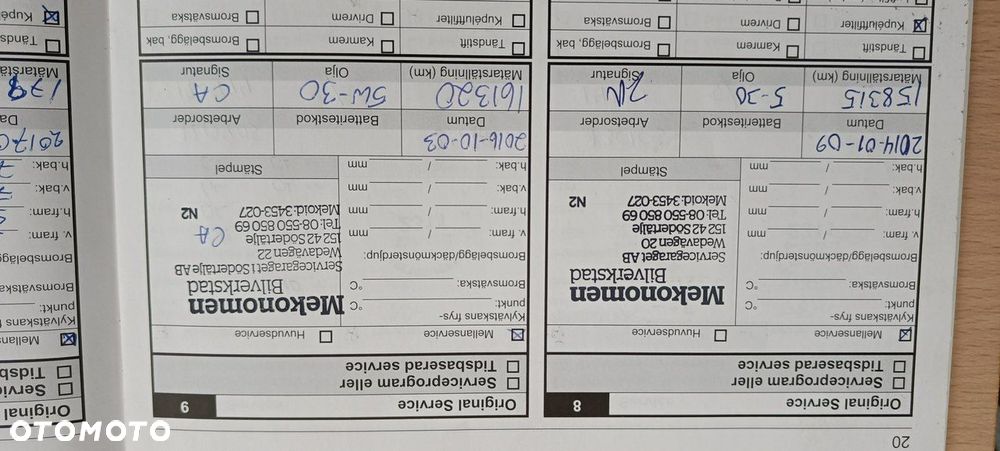 20
Original Service
8
Serviceprogram eller
Tidsbaserad service
Mellanservice
Huvudservice
Kylvätskans frys-
punkt: °C
Bromsvätska: °C
Bromsbelägg/däckmönsterdjup:
v. fram: / mm
h.fram: / mm
v.bak: / mm
h.bak: / mm
Mekonomen
Bilverkstad
Servicegaraget AB
Wedavägen 20
152 42 Södertälje
Tel: 08-550 850 69
Mekoid: 3453-027 N2
Stämpel
Datum
2014-01-09
Batteritestkod
Arbetsorder
Mätarställning (km)
158315
Olja
5-30
Signatur
Tändstift
Kamrem
Bromsbelägg, bak
Kupéluftfilter
Drivrem
Bromsvätska
Original Service
9
Serviceprogram eller
Tidsbaserad service
Mellanservice
Huvudservice
Kylvätskans frys-
punkt: °C
Bromsvätska: °C
Bromsbelägg/däckmönsterdjup:
v. fram: / mm
h.fram: / mm
v.bak: / mm
h.bak: / mm
Mekonomen
Bilverkstad
Servicegaraget i Södertälje AB
Wedavägen 22
152 42 Södertälje
Tel: 08-550 850 69
Mekoid: 3453-027 N2
CA
Stämpel
Datum
2016-10-03
Batteritestkod
Arbetsorder
Mätarställning (km)
161320
Olja
5W-30
Signatur
CA
Tändstift
Kamrem
Bromsbelägg, bak
Kupéluftfilter
Drivrem
Bromsvätska
Original
Servi
Tidsb
Mellans
Kylvätskans
punkt:
Bromsvätska
Bromsbelägg
v. fram:
h.fram:
v.bak:
h.bak:
Da
2017
Mätarstä
178
Tänds
Kupé
OTOMOTO